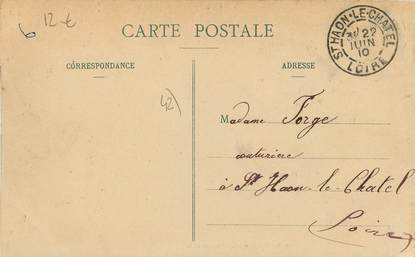 12 €
CARTE POSTALE
CÓRRESPONDANCE
ADRESSE
ST HAON-LE-CHATEL
22
JUIN
10
LOIRE
42)
Madame Forge
couturière
à St Haon-le-Chatel
Loire